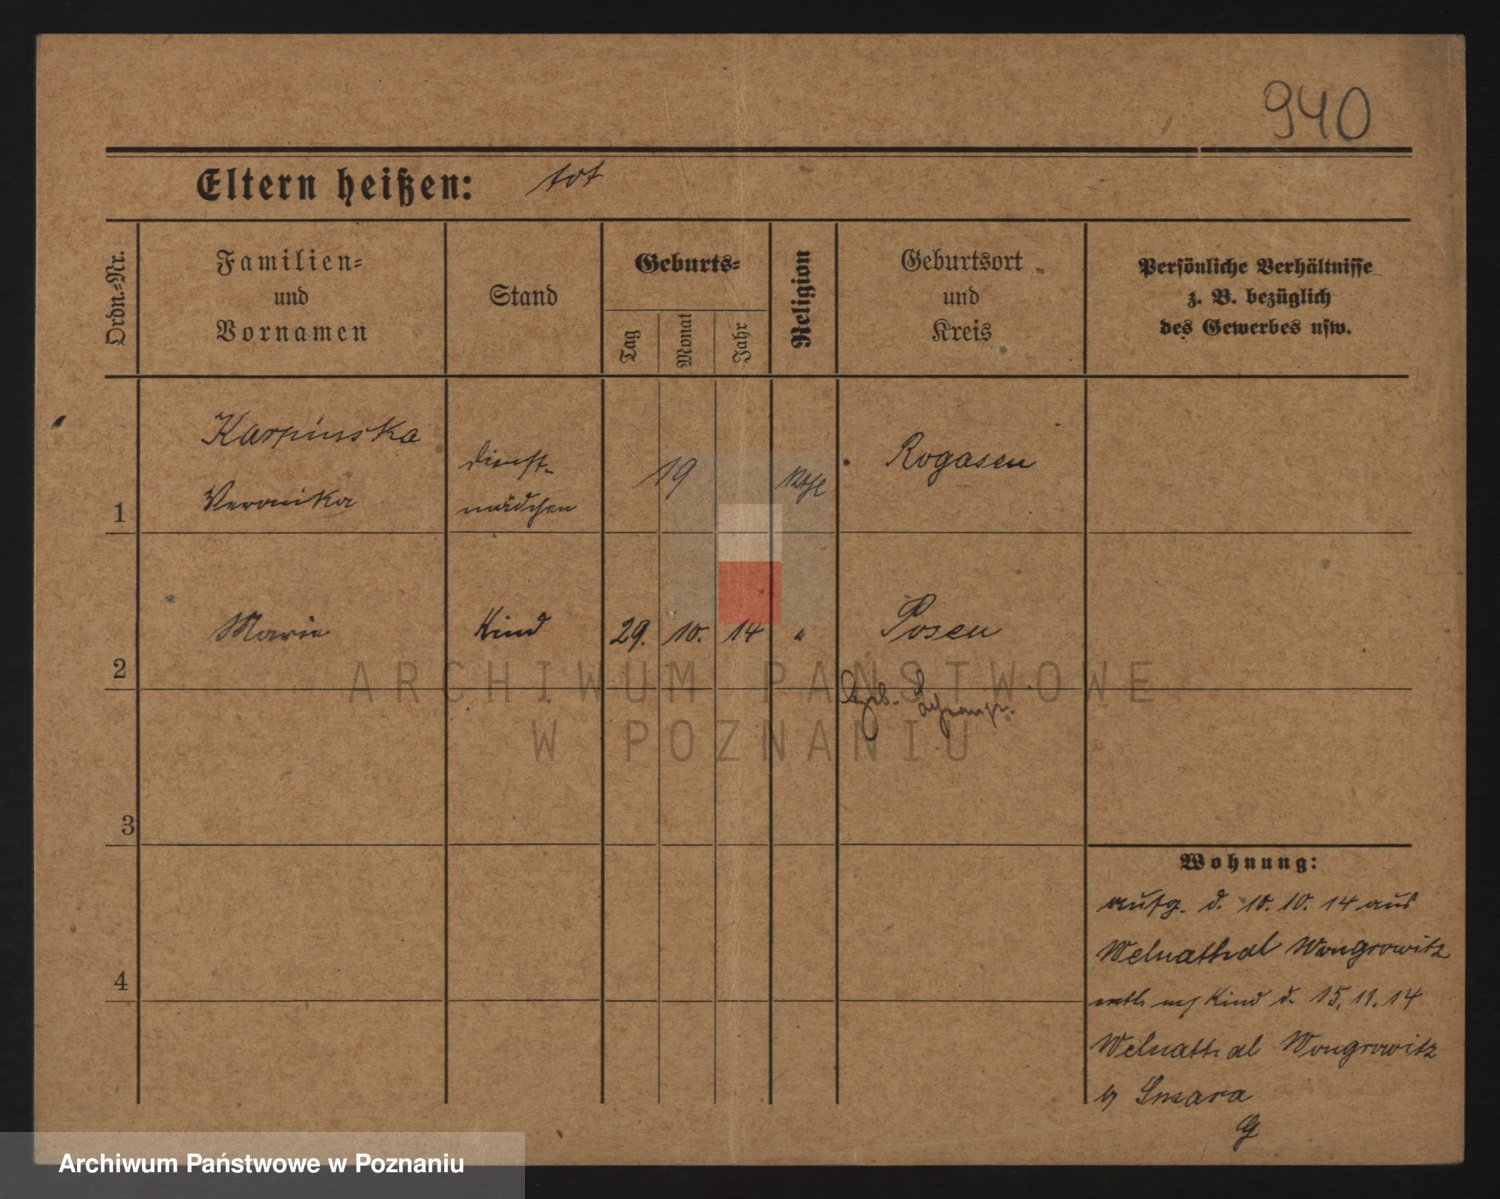 940
Eltern heißen: tot
Ordn.-Nr.
Familien-
und
Vornamen
Stand
Geburts-
Tag
Monat
Jahr
Religion
Geburtsort
und
Kreis
Persönliche Verhältnisse
z. B. bezüglich
des Gewerbes usw.
1
Karpinska
Veronika
Dienst-
mädchen
19
kath
Rogasen
2
Marie
Kind
29. 10. 14
"
Posen
Geb.
3
4
Wohnung:
aufg. d. 10. 10. 14 aus
Welnatthal Wongrowitz
Kind d. 15. 11. 14
Welnatthal Wongrowitz
ARCHIWUM PAŃSTWOWE
W POZNANIU
Archiwum Państwowe w Poznaniu